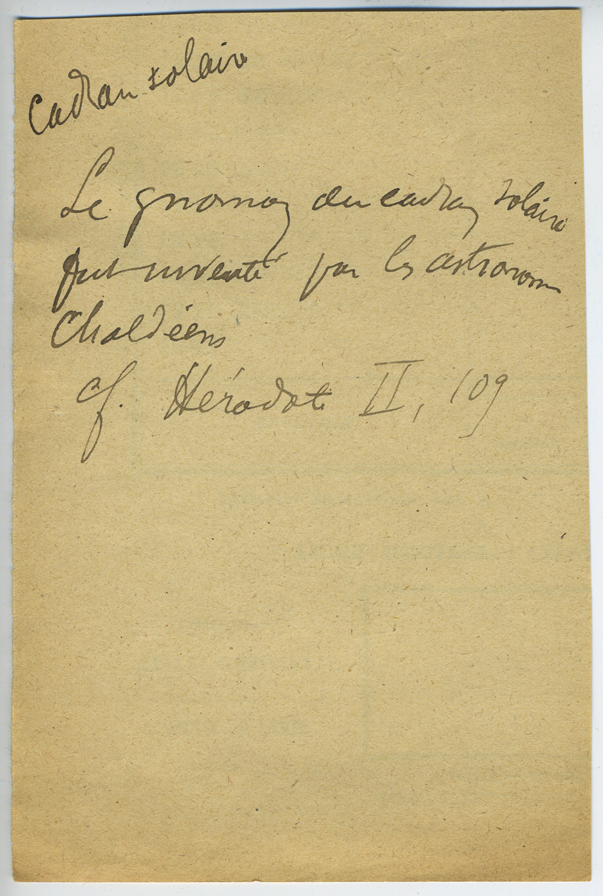 Cadran solaire
Le gnomon du cadran solaire
fut inventé par les astronomes
Chaldéens
cf. Hérodote II, 109